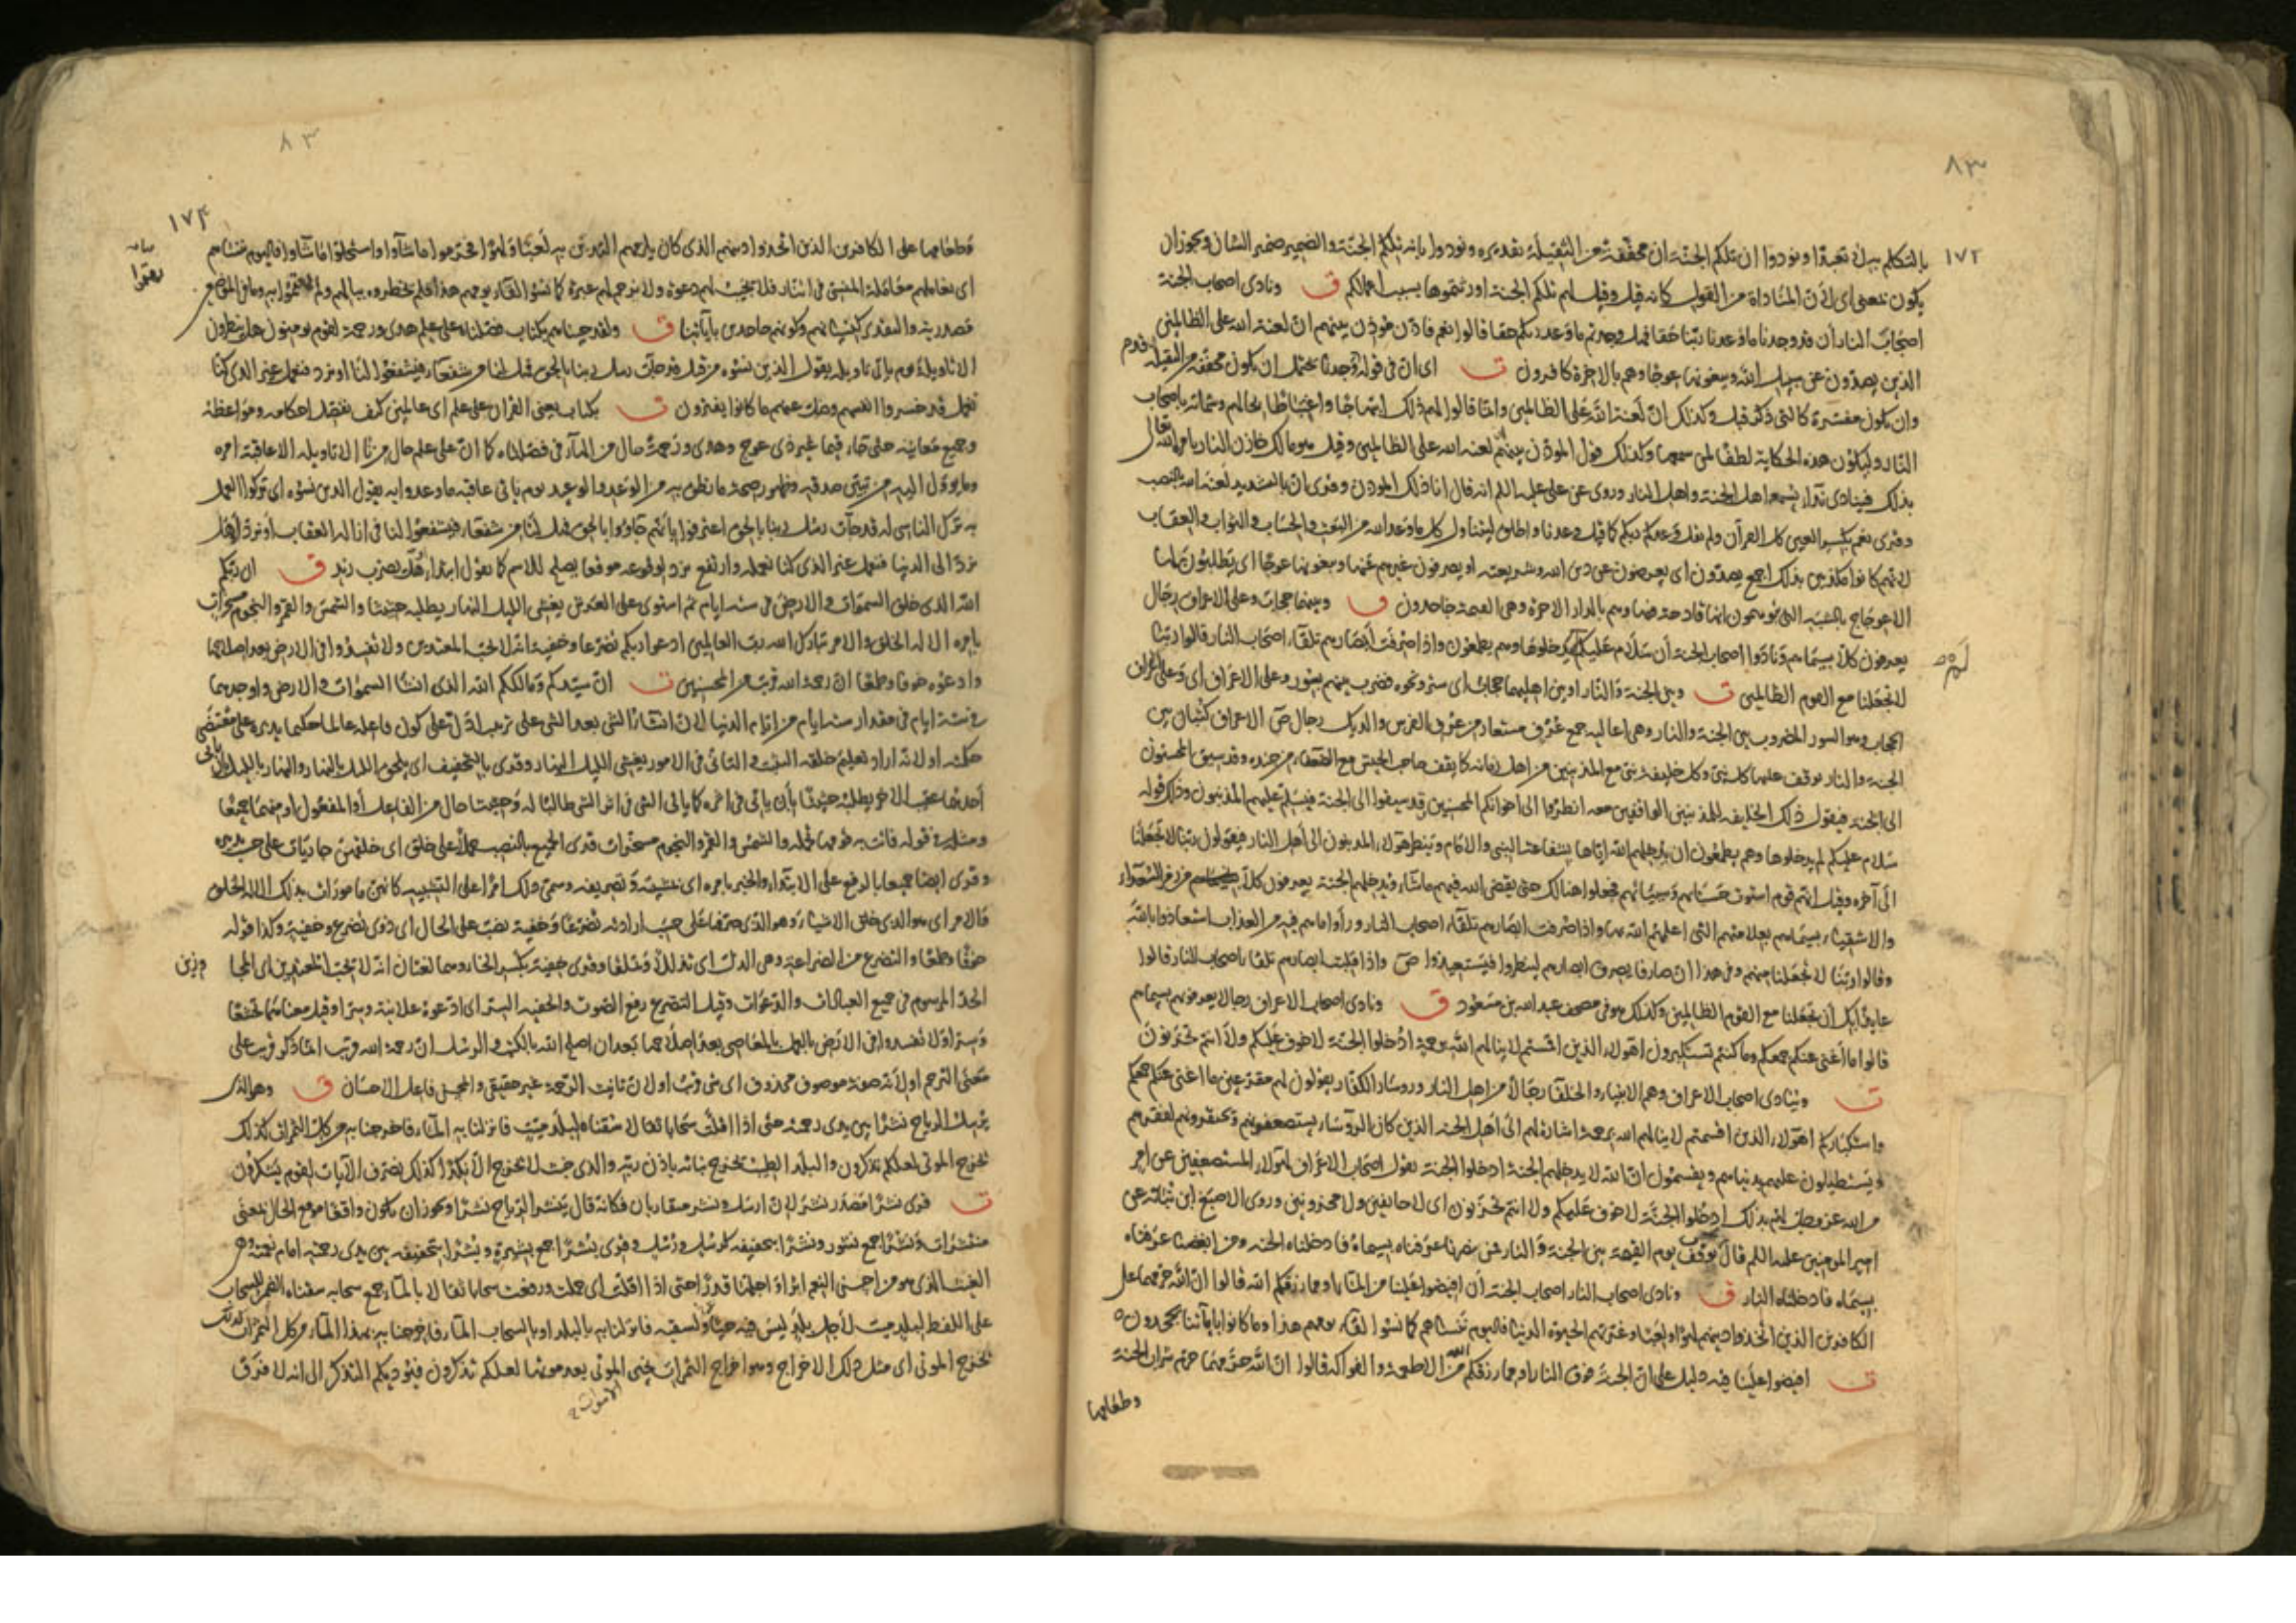 ٨٣
١٧٢
بالتكلم بها تعبدا ونودوا ان تلكم الجنة ان مخففة من الثقيلة تقديره ونودوا بانه تلكم الجنة والضمير ضمير الشان ويجوز ان
يكون بمعنى اي لان المناداة من القول كانه قيل وقيل لهم تلكم الجنة اورثتموها بسبب اعمالكم ق ونادى اصحاب الجنة
اصحاب النار أن قد وجدنا ما وعدنا ربنا حقا فهل وجدتم ما وعد ربكم حقا قالوا نعم فاذن مؤذن بينهم ان لعنة الله على الظالمين
الذين يصدون عن سبيل الله ويبغونها عوجا وهم بالاخرة كافرون ت اى ان فى قوله أن قد وجدنا يحتمل ان يكون مخففة من الثقيلة
وان يكون مفسرة كالتى ذكر قبل وكذلك ان لعنة الله على الظالمين وانما قالوا لهم ذلك ابتهاجا واغتباطا بحالهم وشماتة باصحاب
النار وليكون هذه الحكاية لطفا لمن سمعها وكذلك قول المؤذن بينهم لعنة الله على الظالمين وقيل هو مالك خازن النار يامر الله تعالى
بذلك فينادى نداء يسمع اهل الجنة واهل النار وروى عن على عليه السلم انه قال انا ذلك المؤذن وقرئ ان بالتشديد لعنة الله بالنصب
وقرئ نعم بكسر العين كل القرآن ولم يقل وعدكم ربكم كما قيل وعدنا واطلق ليتناول كل ما وعد الله من البعث والحساب والثواب والعقاب
لانهم كانوا مكذبين بذلك اجمع يصدون اى يعرضون عن دين الله وشريعته او يصرفون غيرهم عنها ويبغونها عوجا اى يطلبون لها
الاعوجاج بالشبه التى يوهمون انها قادحة فيها وهم بالدار الاخرة وهى القيمة جاحدون ق وبينهما حجاب وعلى الاعراف رجال
يعرفون كلا بسيماهم ونادوا اصحاب الجنة أن سلام عليكم لم يدخلوها وهم يطمعون واذا صرفت أبصارهم تلقاء اصحاب النار قالوا ربنا
لا تجعلنا مع القوم الظالمين ت وبين الجنة والنار او بين اهليهما حجاب اى ستر ونحوه فضرب بينهم بسور وعلى الاعراف اى وعلى اعراف
الحجاب وهو السور المضروب بين الجنة والنار وهى اعاليه جمع عرف مستعار من عرف الفرس والديك رجال ص الاعراف كثبان بين
الجنة والنار يوقف عليها كل نبى وكل خليفة نبى مع المذنبين من اهل زمانه كما يقف صاحب الجيش مع الضعفاء من جنده وقد سبق المحسنون
الى الجنة فيقول ذلك الخليفة للمذنبين الواقفين معه انظروا الى اخوانكم المحسنين قد سيقوا الى الجنة فيسلم عليهم المذنبون وذلك قوله
سلام عليكم لم يدخلوها وهم يطمعون ان يدخلهم الله اياها بشفاعة النبى والامام وينظر هؤلاء المذنبون الى أهل النار فيقولون ربنا لا تجعلنا
الى آخره وقيل انهم قوم استوت حسناتهم وسيئاتهم فجعلوا هنالك حتى يقضى الله فيهم ما شاء ويدخلهم الجنة يعرفون كلا من زمر السعداء
والاشقياء بسيماهم بعلامتهم التى اعلمهم الله بها واذا صرفت ابصارهم تلقاء اصحاب النار ورأوا ما هم فيه من العذاب استعاذوا بالله
وقالوا ربنا لا تجعلنا معهم وفى هذا ان صارفا يصرف ابصارهم لينظروا فيستعيذوا ص واذا قلبت ابصارهم تلقاء اصحاب النار قالوا
عايذا بك أن تجعلنا مع القوم الظالمين وكذلك هو فى مصحف عبد الله بن مسعود ق ونادى اصحاب الاعراف رجالا يعرفونهم بسيماهم
قالوا ما أغنى عنكم جمعكم وما كنتم تستكبرون أهؤلاء الذين اقسمتم لا ينالهم الله برحمة ادخلوا الجنة لا خوف عليكم ولا انتم تحزنون
ت وينادى اصحاب الاعراف وهم الانبياء والخلفاء رجالا من اهل النار ورؤساء الكفار يقولون لهم مقرعين ما اغنى عنكم جمعكم
واستكباركم أهؤلاء الذين اقسمتم لا ينالهم الله برحمة اشارة لهم الى أهل الجنة الذين كان الرؤساء يستضعفونهم ويحتقرونهم لفقرهم
ويستطيلون عليهم بدنياهم ويقسمون ان الله لا يدخلهم الجنة ادخلوا الجنة يقول اصحاب الاعراف لهؤلاء المستضعفين عن امر
من الله عز وجل لهم بذلك ادخلوا الجنة لا خوف عليكم ولا انتم تحزنون اى لا خايفين ولا محزونين وروى الاصبغ ابن نباتة عن
امير المؤمنين عليه السلم قال نوقف يوم القيمة بين الجنة والنار فمن نصرنا عرفناه بسيماه فادخلناه الجنة ومن ابغضنا عرفناه
بسيماه فادخلناه النار ق ونادى اصحاب النار اصحاب الجنة أن افيضوا علينا من الماء او مما رزقكم الله قالوا ان الله حرمهما على
الكافرين الذين اتخذوا دينهم لهوا ولعبا وغرتهم الحيوة الدنيا فاليوم ننساهم كما نسوا لقاء يومهم هذا وما كانوا باياتنا يجحدون
ت افيضوا علينا فيه دليل على ان الجنة فوق النار او مما رزقكم الله من الاطعمة والفواكه قالوا ان الله حرمهما حرم شراب الجنة
وطعامها
٨٣
١٧٤
وطعامها على الكافرين الذين اتخذوا دينهم الذى كان يلزمهم التدين به لعبا ولهوا فحرموا ما شآوا واستحلوا ما شآوا فاليوم ننساهم
اى نعاملهم معاملة المنسى فى النار فلا نجيب لهم دعوة ولا نرحم لهم عبرة كما نسوا لقاء يومهم هذا فلم يخطروه ببالهم ولم يهتموا به وما فى الموضعين
مصدرية والتقدير كنسيانهم وكونهم جاحدين بآياتنا ق ولقد جئناهم بكتاب فصلناه على علم هدى ورحمة لقوم يؤمنون هل ينظرون
الا تاويله يوم ياتى تاويله يقول الذين نسوه من قبل قد جآت رسل ربنا بالحق فهل لنا من شفعاء فيشفعوا لنا او نرد فنعمل غير الذى كنا
نعمل قد خسروا انفسهم وضل عنهم ما كانوا يفترون ت بكتاب يعنى القران على علم اى عالمين كيف نفصل احكامه ومواعظه
وجميع معانيه حتى جاء قيما غير ذى عوج وهدى ورحمة حال من الهآء فى فصلناه كما ان على علم حال من نا الا تاويله الا عاقبة امره
وما يؤول اليه من تبين صدقه وظهور صحة ما نطق به من الوعد والوعيد يوم ياتى عاقبة ما وعدوا به يقول الذين نسوه اى تركوا العمل
به ترك الناسى له قد جآت رسل ربنا بالحق اعترفوا بانهم جاؤوا بالحق فهل لنا من شفعاء فيشفعوا لنا فى ازالة العقاب أو نرد أو هل
نرد الى الدنيا فنعمل غير الذى كنا نعمله وارتفع نرد لوقوعه موقعا يصلح للاسم كما تقول ابتداء هل يضرب زيد ق ان ربكم
الله الذى خلق السموات والارض فى ستة ايام ثم استوى على العرش يغشى الليل النهار يطلبه حثيثا والشمس والقمر والنجوم مسخرات
بامره الا له الخلق والامر تبارك الله رب العالمين ادعوا ربكم تضرعا وخفية انه لا يحب المعتدين ولا تفسدوا فى الارض بعد اصلاحها
وادعوه خوفا وطمعا ان رحمة الله قريب من المحسنين ت ان سيدكم ومالككم الله الذى انشأ السموات والارض واوجدهما
فى ستة ايام فى مقدار ستة ايام من ايام الدنيا لان انشاء الشئ بعد الشئ على ترتيب ادل على كون فاعله عالما حكيما يدبره على مقتضى
حكمته او لانه اراد تعليم خلقه التثبت والتأنى فى الامور يغشى الليل النهار وقرئ بالتخفيف اى يلحق الليل بالنهار والنهار بالليل بان ياتى
أحدهما عقيب الاخر يطلبه حثيثا بأن ياتى فى اثره كما ياتى الشئ فى اثر الشئ طالبا له وحثيثا حال من الفاعل أو المفعول او منهما جميعا
ومثله قوله فاتت به قومها تحمله والشمس والقمر والنجوم مسخرات قرئ الجميع بالنصب حملا على خلق اى خلقهن جاريات على حسب تدبيره
وقرئ ايضا جميعا بالرفع على الابتداء والخبر بامره اى بمشيته وتصريفه وسمى ذلك امرا على التشبيه كانهن مامورات بذلك الا له الخلق
والامر اى هو الذى خلق الاشياء وهو الذى صرفها على حسب ارادته تضرعا وخفية نصب على الحال اى ذوى تضرع وخفية وكذا قوله
خوفا وطمعا والتضرع من الضراعة وهى الذل اى تذللا وتملقا وقرئ خفية بكسر الخاء وهما لغتان انه لا يحب المعتدين اى المجاوزين
الحد المرسوم فى جميع العبادات والدعوات وقيل التضرع رفع الصوت والخفية السر اى ادعوه علانية وسرا وقيل معناه تخشعا
وسرا ولا تفسدوا فى الارض بالعمل بالمعاصى بعد اصلاحها بعد ان اصلح الله بالكتب والرسل ان رحمة الله قريب انما ذكر قريب على
معنى الترحم او لانه صفة موصوف محذوف اى شئ قريب او لان تانيث الرحمة غير حقيقى والمحسن فاعل الاحسان ق وهو الذى
يرسل الرياح نشرا بين يدى رحمته حتى اذا اقلت سحابا ثقالا سقناه لبلد ميت فانزلنا به المآء فاخرجنا به من كل الثمرات كذلك
نخرج الموتى لعلكم تذكرون والبلد الطيب يخرج نباته باذن ربه والذى خبث لا يخرج الا نكدا كذلك نصرف الآيات لقوم يشكرون
ت قرئ نشرا مصدر نشر لان ارسل ونشر متقاربان فكانه قال ينشر الرياح نشرا ويجوز ان يكون واقعا موقع الحال بمعنى
منتشرات ونشرا جمع نشور ونشرا بتخفيفه كرسل ورسل وقرئ بشرا جمع بشيرة وبشرا بتخفيفه بين يدى رحمته امام نعمته وهى
الغيث الذى هو من احسن النعم اثرا واجلها قدرا حتى اذا اقلت اى حملت ورفعت سحابا ثقالا بالمآء جمع سحابه سقناه الضمير للسحاب
على اللفظ لبلد ميت لأجل بلد ليس فيه حيا ولسقيه فانزلنا به بالبلد او بالسحاب المآء فاخرجنا به بهذا المآء من كل الثمرات كذلك
نخرج الموتى اى مثل ذلك الاخراج وهو اخراج الثمرات نحيى الموتى بعد موتها لعلكم تذكرون فيؤديكم التذكر الى انه لا فرق